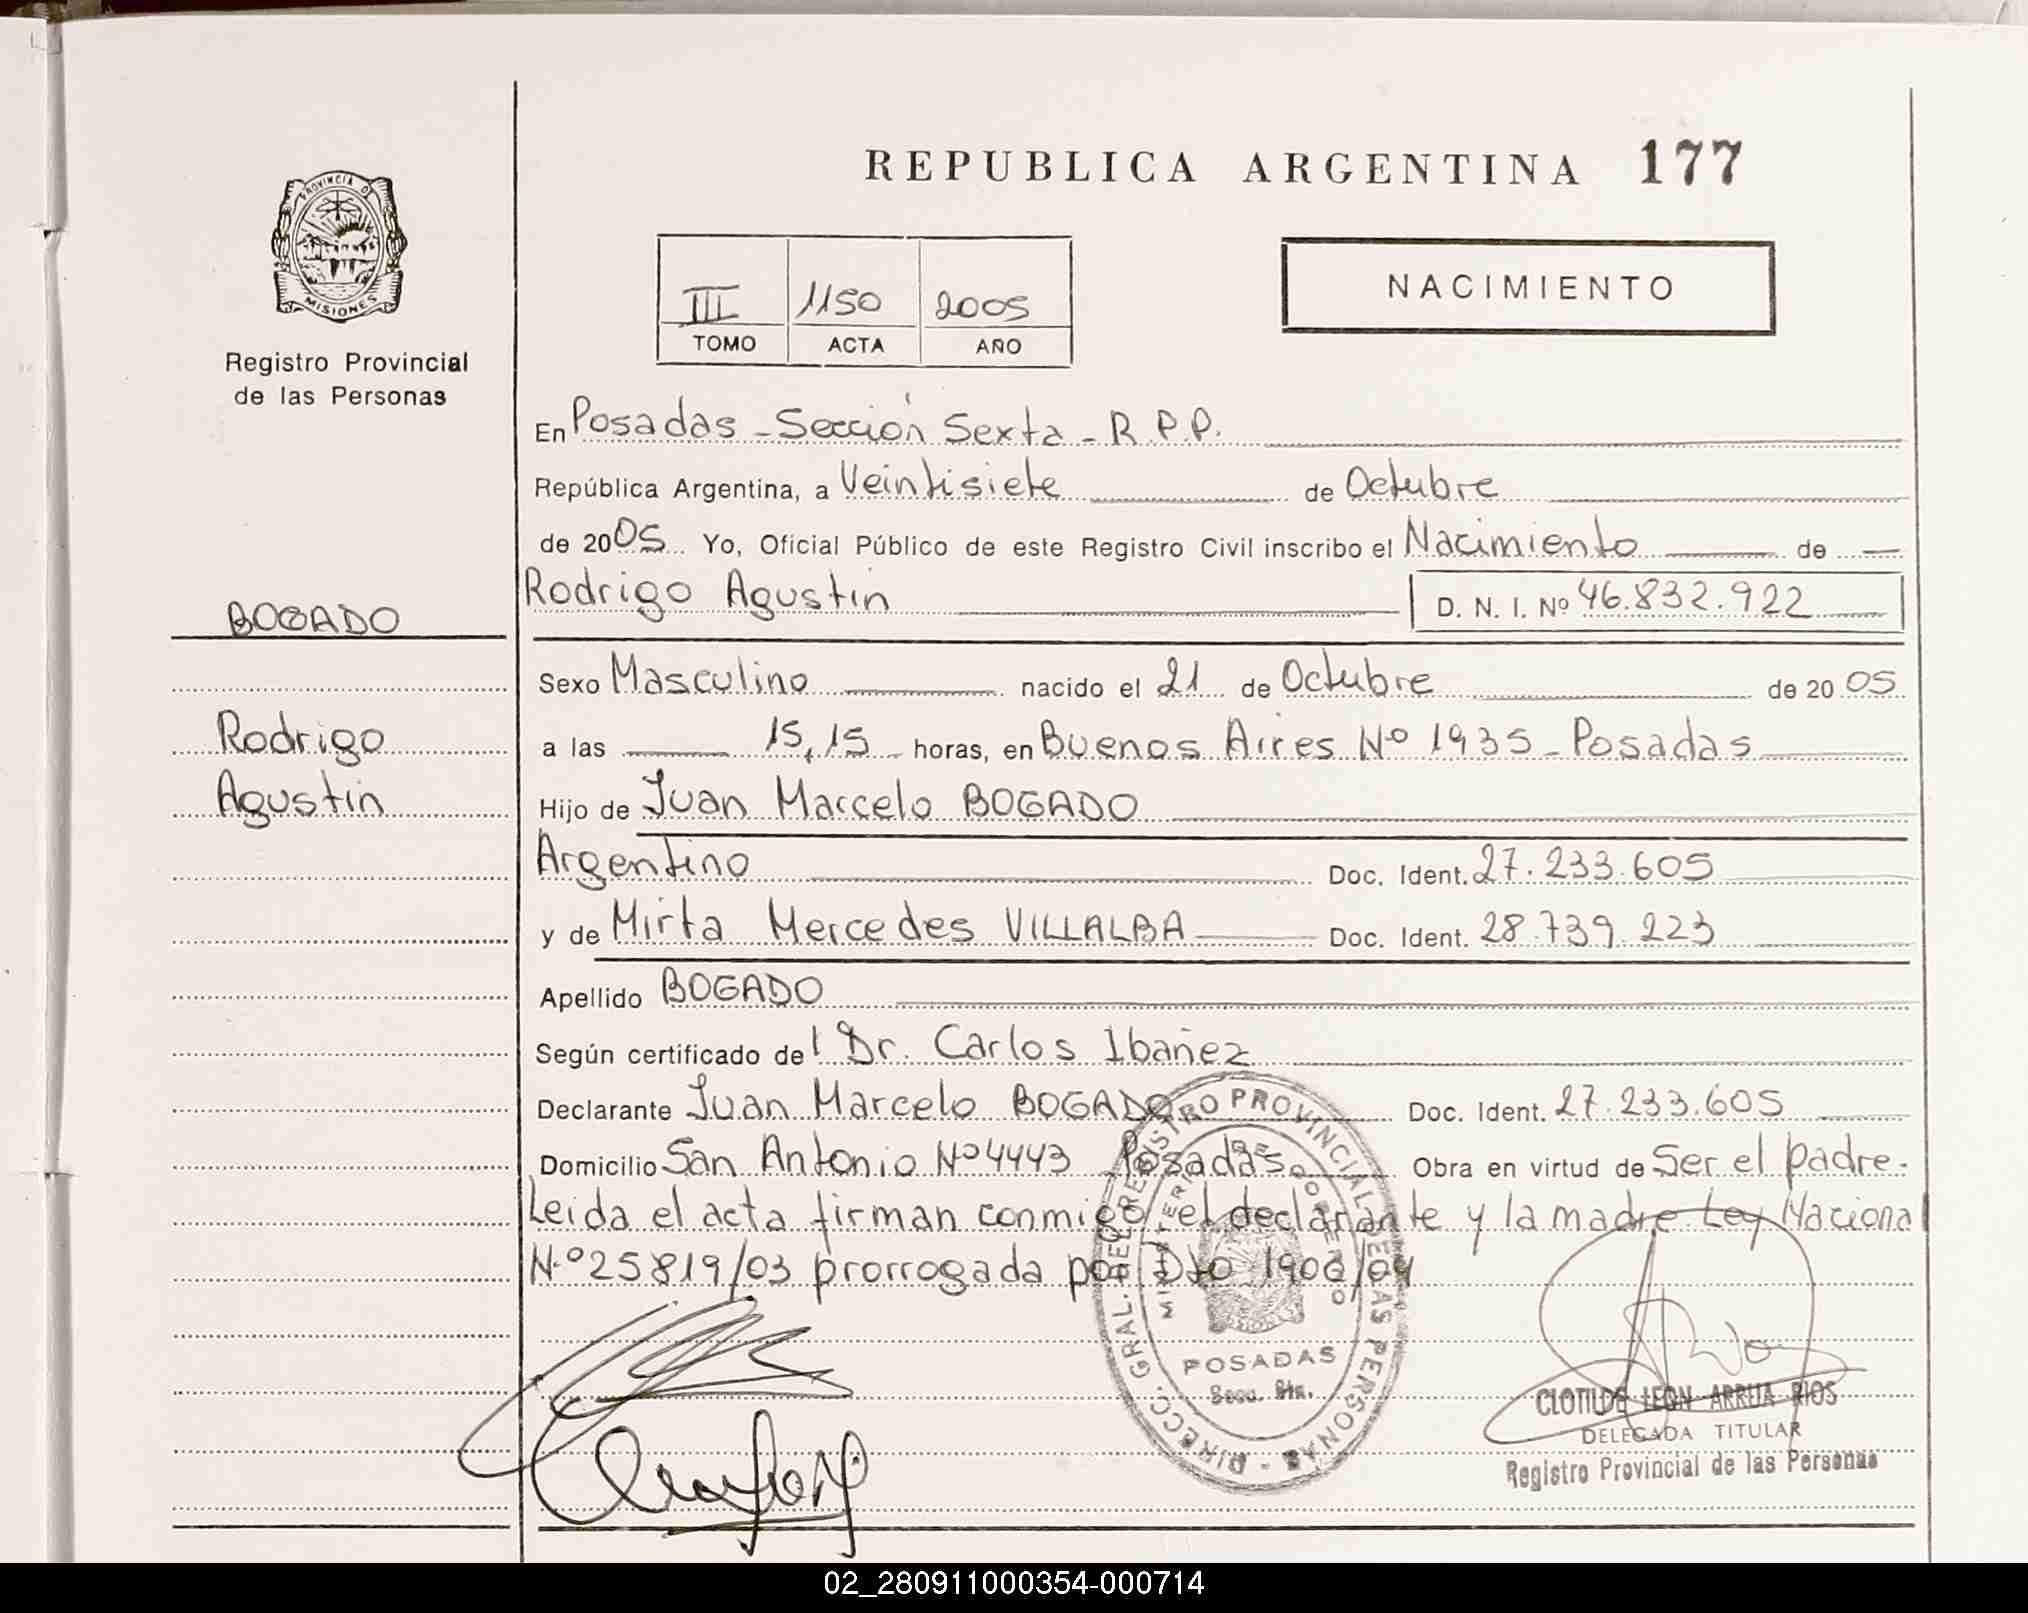 REPUBLICA ARGENTINA 177
PROVINCIA D
MISIONES
Registro Provincial
de las Personas
III 1150 2005
TOMO ACTA AÑO
NACIMIENTO
En Posadas - Sección Sexta - R.P.P.
República Argentina, a Veintisiete de Octubre
de 2005 Yo, Oficial Público de este Registro Civil inscribo el Nacimiento de
Rodrigo Agustin D. N. I. Nº 46.832.922
BOGADO
Rodrigo
Agustin
Sexo Masculino nacido el 21 de Octubre de 2005
a las 15,15 horas, en Buenos Aires Nº 1935 - Posadas
Hijo de Juan Marcelo BOGADO
Argentino Doc. Ident. 27.233.605
y de Mirta Mercedes VILLALBA Doc. Ident. 28.739.223
Apellido BOGADO
Según certificado del Dr. Carlos Ibañez
Declarante Juan Marcelo BOGADO Doc. Ident. 27.233.605
Domicilio San Antonio Nº 4443 Posadas. Obra en virtud de Ser el padre.
Leida el acta firman conmigo el declarante y la madre Ley Naciona
Nº 25819/03 prorrogada por Dto
DIRECC. GRAL. DEL REGISTRO PROVINCIAL DE LAS PERSONAS
MINISTERIO DE GOBIERNO
POSADAS
Secc. 6ta.
CLOTILDE LEON ARRUA RIOS
DELEGADA TITULAR
Registro Provincial de las Personas
02_280911000354-000714